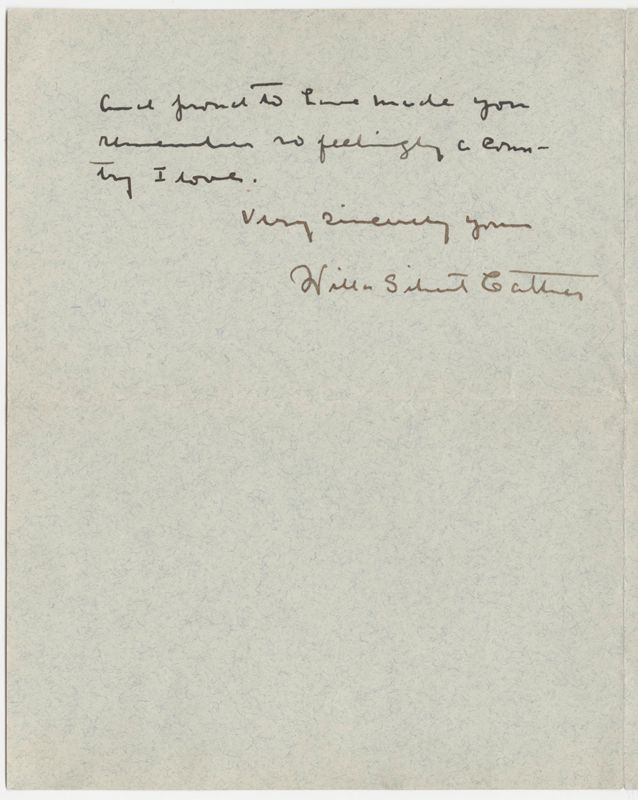 and proud to have made you
remember so feelingly a coun-
try I love.
Very sincerely yours
Willa Sibert Cather